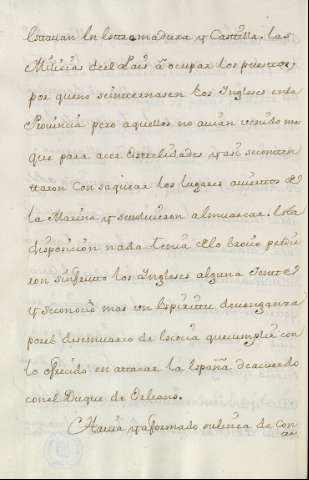 estauan en estremadura y Castilla. las
Milicias del Pais â ocupar los puertos,
por queno seinternasen los Ingleses enla
Prouincia pero aquellos no auian venido mas
que para acer ostilidades y asi seconten
taron con saquear los lugares auiertos de
la Marina y seuoluieron a enuarcar. Esta
disposicion nada tenia dello
sin los Ingleses alguna Jente,
y seconocio mas con Espiritu deuenganza
por el de que cumplir con
lo ofrecido en atacar la España deacuerdo
con el Duque de Orleans.
Hauia ya formado su linea de con